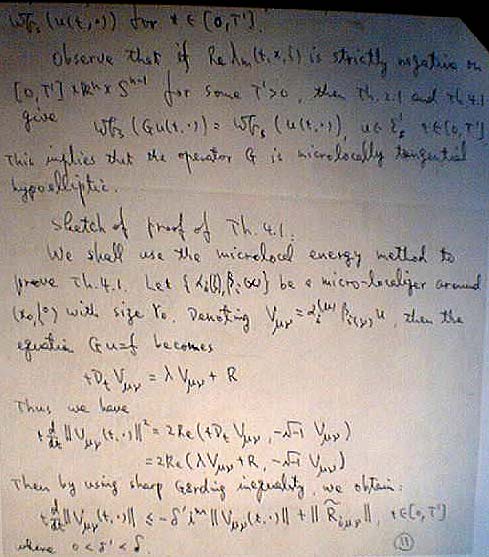 WF_s (u(t,·)) for t ∈ [0,T'].
Observe that if Re λ_m(t,x,ξ) is strictly negative on
[0,T'] × R^n × S^{n-1} for some T'>0, then Th. 2.1 and Th 4.1
give WF_s (Gu(t,·)) = WF_s (u(t,·)), u ∈ t ∈ [0,T']
This implies that the operator G is microlocally tangential
hypoelliptic.
Sketch of proof of Th. 4.1:
We shall use the microlocal energy method to
prove Th. 4.1. Let {α_i(ξ), β_i(x)} be a micro-localizer around
(x_0, ξ^0) with size r_0. Denoting V_{μν} = α_i^{(μ)} β_{i(ν)} u, then the
equation Gu=f becomes
tD_t V_{μν} = λ V_{μν} + R
Thus we have
t d/dt ‖V_{μν}(t,·)‖² = 2Re (tD_t V_{μν}, -√-1 V_{μν})
= 2Re (λV_{μν} + R, -√-1 V_{μν})
Then by using sharp Gårding inequality, we obtain:
t d/dt ‖V_{μν}(t,·)‖ ≤ -δ' i^m ‖V_{μν}(t,·)‖ + ‖R̃_{iμν}‖, t ∈ [0,T']
where 0 < δ' < δ.
11